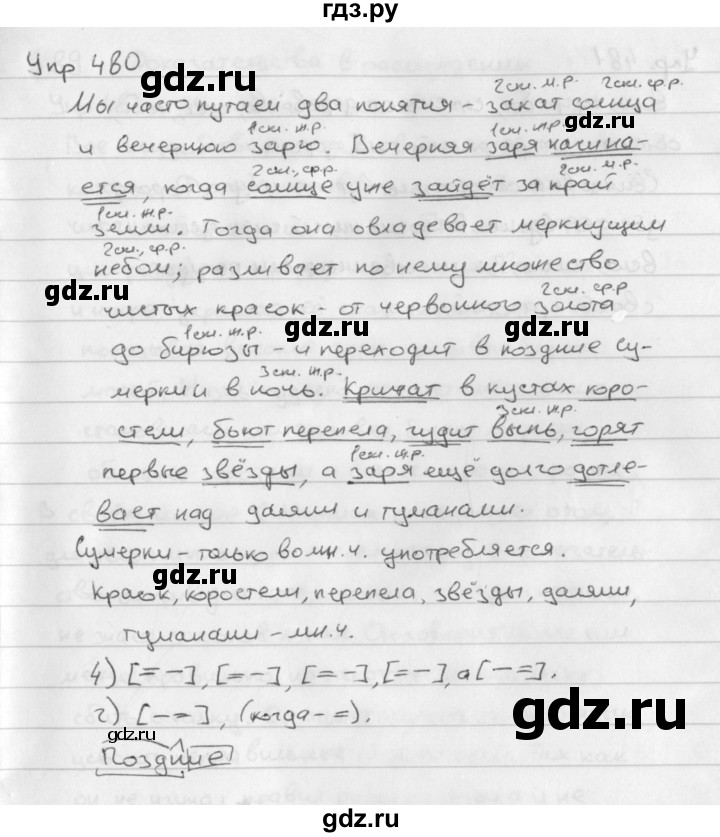 гдз.ру
Упр 480
gdz.ru
2скл. м.р. 2скл. ср.р.
Мы часто путаем два понятия - закат солнца
gdz.ru
1скл. ж.р. 1скл. ж.р.
и вечернюю зарю. Вечерняя заря начина-
2скл., ср.р. 2скл. м.р.
ется, когда солнце уже зайдёт за край
1скл. ж.р.
земли. Тогда она овладевает меркнущим
2скл., ср.р.
небом, разливает по нему множество
gdz.ru gdz.ru
2скл. ср.р.
чистых красок - от червонного золота
1скл. ж.р. gdz.ru gdz.ru
до бирюзы - и переходит в поздние су-
3скл. ж.р.
мерки и в ночь. Кричат в кустах коро-
3скл. ж.р.
стели, бьют перепела, гудит выпь, горят
gdz.ru gdz.ru
1скл. ж.р.
первые звёзды, а заря ещё долго дотле-
вает над далями и туманами.
Сумерки - только во мн.ч. употребляется.
gdz.ru gdz.ru
Красок, коростели, перепела, звёзды, далями,
туманами - мн.ч.
4) [= -], [= -], [= -], [= -], а [- =].
2) [- =], (когда - =).
gdz.ru gdz.ru
Поздние